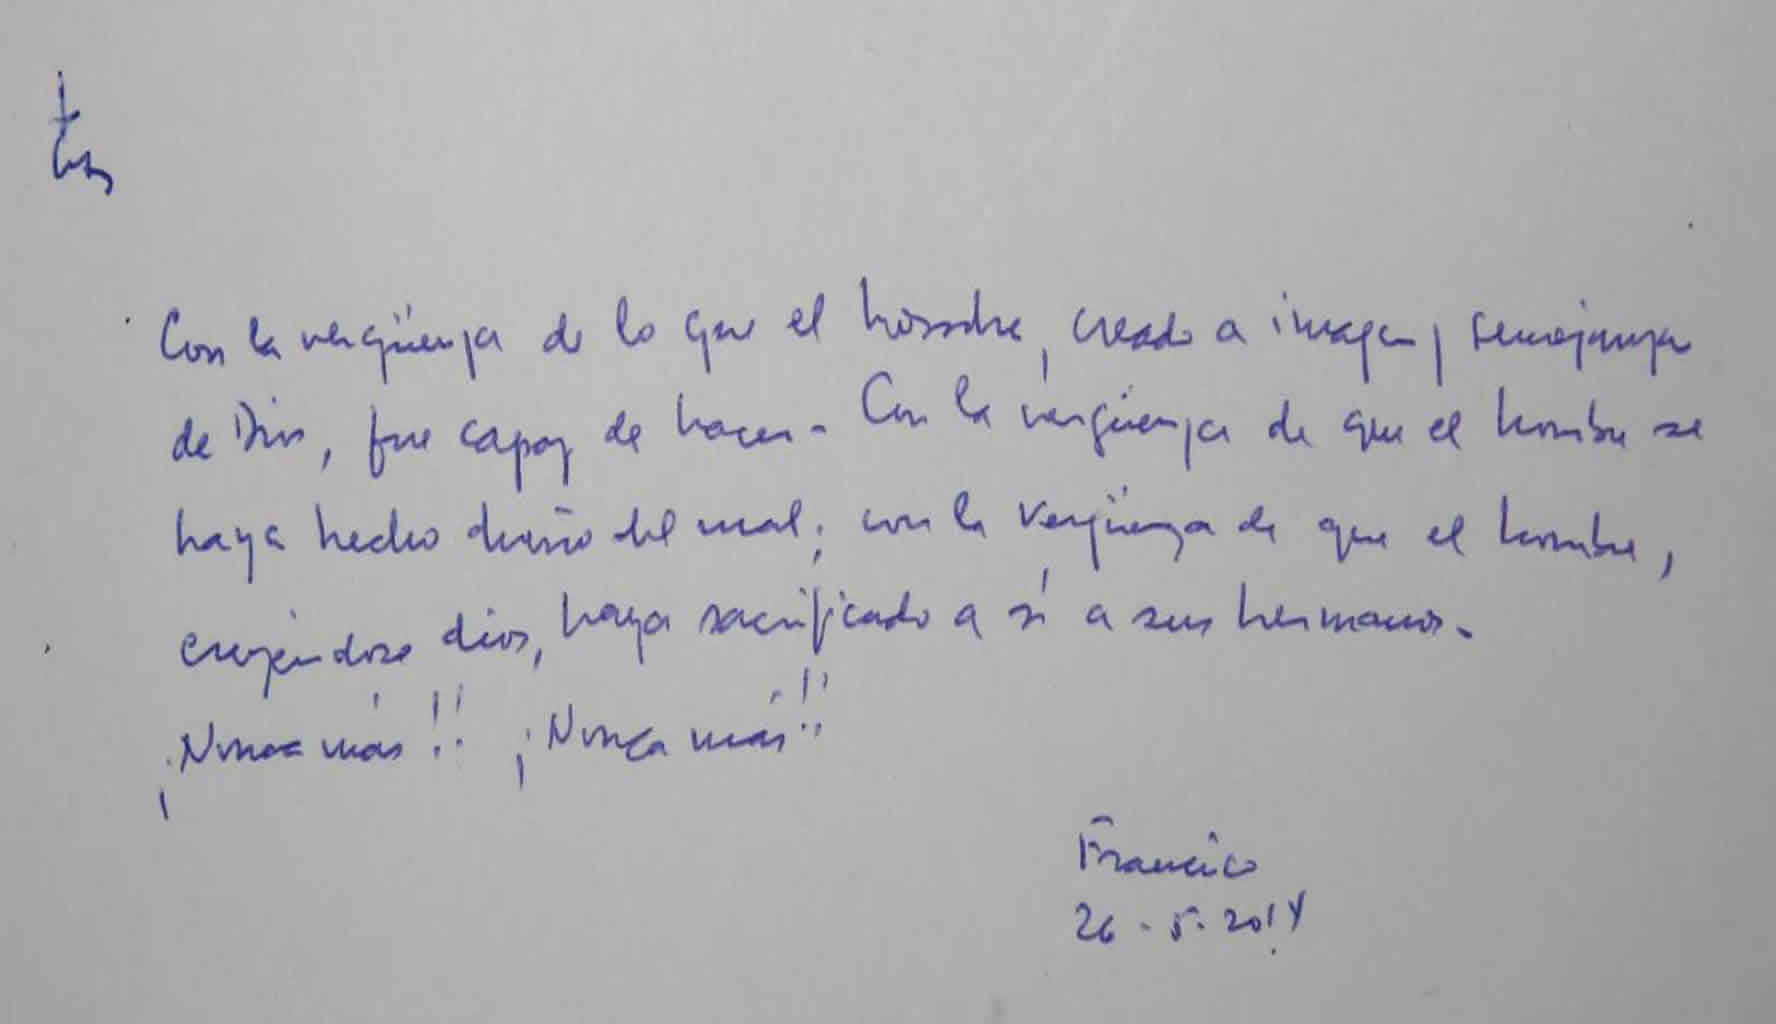 Con la vergüenza de lo que el hombre, creado a imagen y semejanza
de Dios, fue capaz de hacer. Con la vergüenza de que el hombre se
haya hecho dueño del mal; con la vergüenza de que el hombre,
creyéndose dios, haya sacrificado a sí a sus hermanos.
¡Nunca más!! ¡Nunca más!!
Francisco
26.5.2014